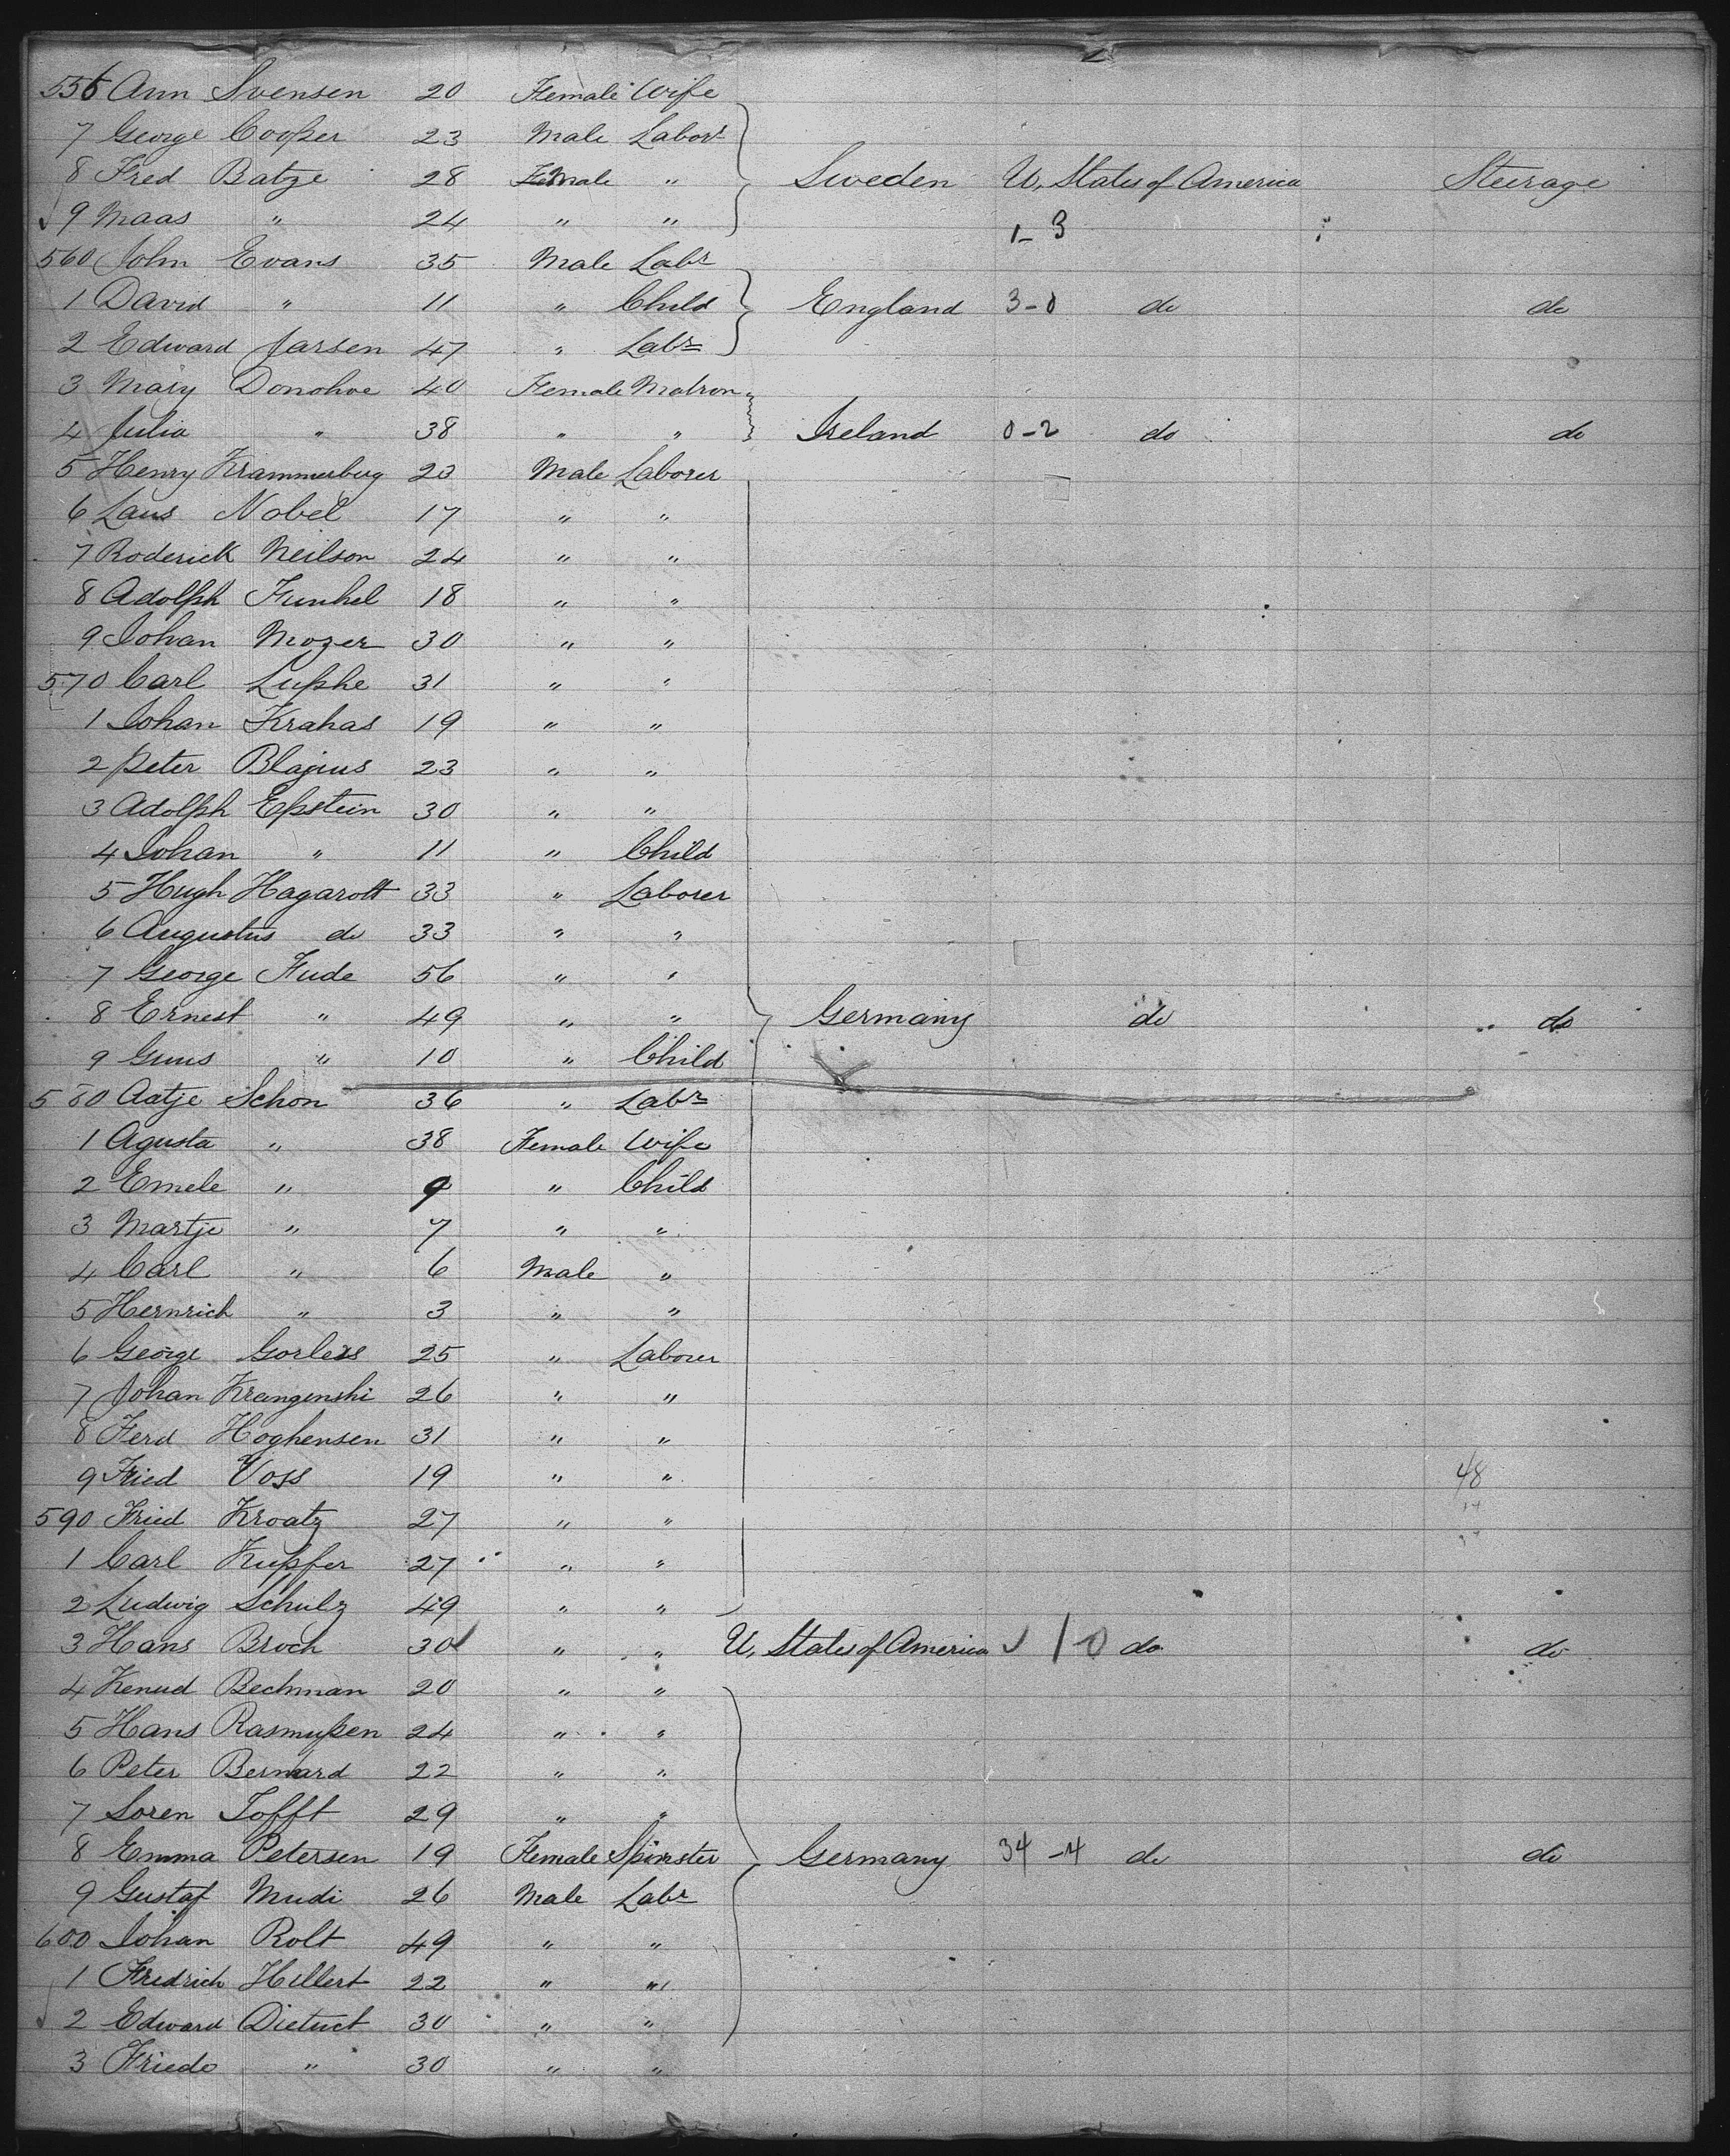 556 Ann Svensen 20 Female Wife
7 George Cooper 23 Male Labor
8 Fred Batze 28 Female " Sweden U. States of America Steerage
9 Maas " 24 " " 1-3
560 John Evans 35 Male Labr
1 David " 11 " Child England 3-0 do do
2 Edward Jarsen 47 " Labr
3 Mary Donohoe 40 Female Matron
4 Julia " 38 " " Ireland 0-2 do do
5 Henry Krammerburg 23 Male Laborer
6 Laus Nobel 17 " "
7 Roderick Neilson 24 " "
8 Adolph Funkel 18 " "
9 Johan Mozer 30 " "
570 Carl Luphe 31 " "
1 Johan Krahas 19 " "
2 Peter Blajius 23 " "
3 Adolph Epstein 30 " "
4 Johan " 11 " Child
5 Hugh Hagarott 33 " Laborer
6 Augustus do 33 " "
7 George Fude 56 " "
8 Ernest " 49 " " Germany do do
9 Guus " 10 " Child
580 Aatje Schon 36 " Labr
1 Agusta " 38 Female Wife
2 Emele " 9 " Child
3 Martje " 7 " "
4 Carl " 6 Male "
5 Hernrich " 3 " "
6 George Gorleis 25 " Laborer
7 Johan Krangenshi 26 " "
8 Ferd Hoghensen 31 " "
9 Fried Voss 19 " " 48
590 Fried Kroatz 27 " "
1 Carl Kupfer 27 " "
2 Ludwig Schulz 49 " "
3 Hans Broch 30 " " U. States of America 1 0 do do
4 Kenud Bechman 20 " "
5 Hans Rasmußen 24 " "
6 Peter Bernard 22 " "
7 Soren Tofft 29 " "
8 Emma Petersen 19 Female Spinster Germany 34-4 do do
9 Gustaf Mudi 26 Male Labr
600 Johan Rolt 49 " "
1 Fredrich Hillert 22 " "
2 Edward Dietuct 30 " "
3 Friedo " 30 " "